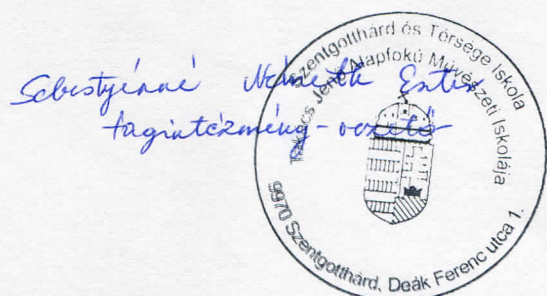 Sebestyénné Németh Eszter
tagintézmény-vezető
Szentgotthárd és Térsége Iskola
Takács Jenő Alapfokú Művészeti Iskolája
9970 Szentgotthárd, Deák Ferenc utca 1.